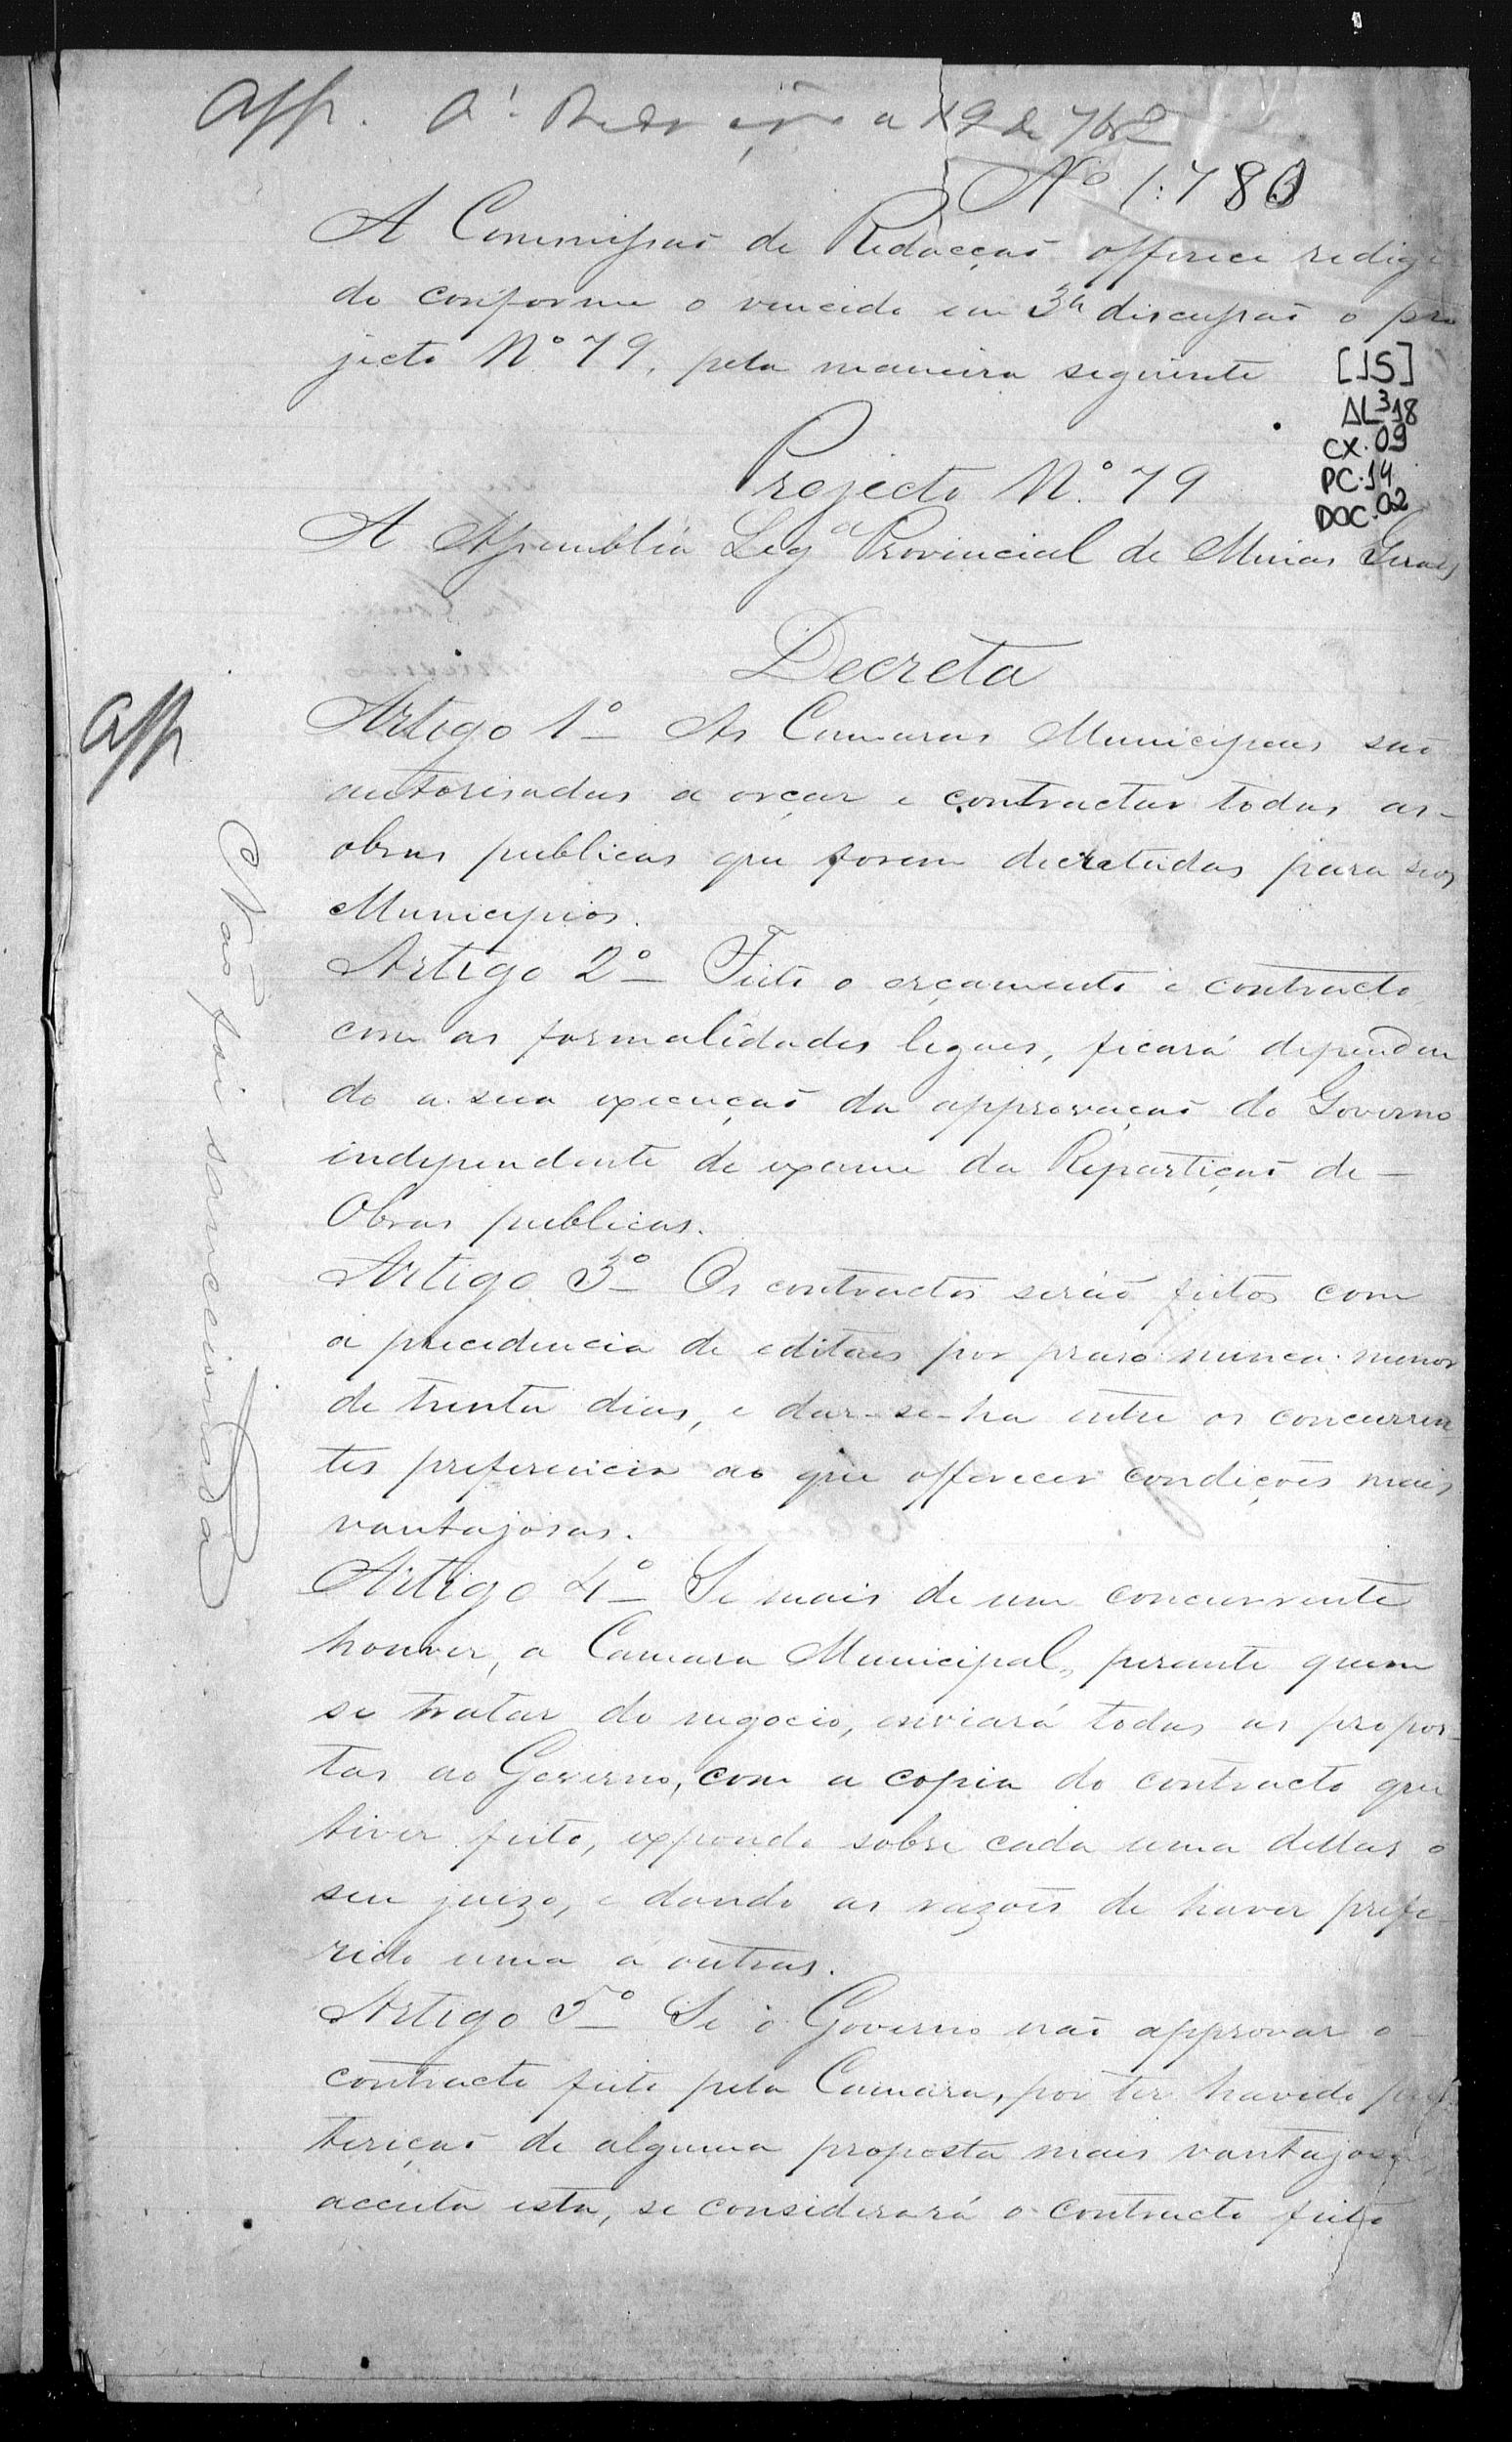 App. A' Redação a 19 de 7br
Nº 1:780
A Commissaõ de Redacçaõ offerece redigi
do conforme o vencido em 3ª discussaõ o pro
jecto Nº 79, pela maneira seguinte
[15]
AL 318
CX. 09
PC. 14
DOC. 02
Projecto N.º 79
A Assemblea Legª Provincial de Minas Geraes
Decreta
Artigo 1º As Camaras Municipaes saõ
autorisadas a orçar e contractar todas as
obras publicas que forem decretadas para seos
Municipios.
Artigo 2º Feito o orçamento e contracto
com as formalidades legaes, ficará dependen
do a sua execuçaõ da approvaçaõ do Governo
independente de exame da Repartiçaõ de
Obras publicas.
Artigo 3º Os contractos seraõ feitos com
a precedencia de editaes por praso nunca menor
de trinta dias, e dar-se-ha entre os concurren
tes preferencia ao que offerecer condições mais
vantajosas.
Artigo 4º Se mais de um concurrente
houver, a Camara Municipal, perante quem
se tratar do negocio, enviará todas as propos-
tas ao Governo, com a copia do contracto que
tiver feito, expondo sobre cada uma dellas o
seu juizo, e dando as razões de haver prefe-
rido uma a outras.
Artigo 5º Se o Governo naõ approvar o
contracto feito pela Camara, por ter havido pre
teriçaõ de alguma proposta mais vantajosa,
acceita esta, se considerará o contracto feito
App
Naõ foi sanccionado